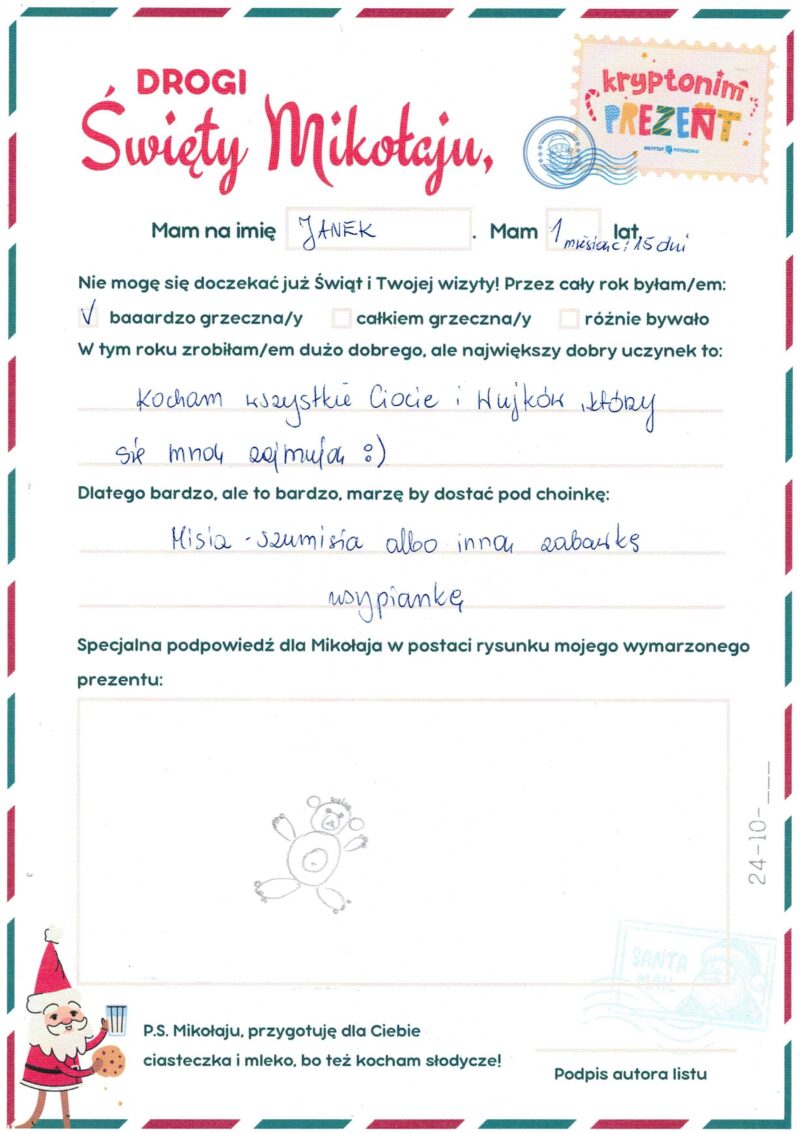 DROGI
Święty Mikołaju,
kryptonim
PREZENT
INSTYTUT POTENCJAŁU
Mam na imię JANEK. Mam 1 miesiąc i 15 dni lat,
Nie mogę się doczekać już Świąt i Twojej wizyty! Przez cały rok byłam/em:
√ baaardzo grzeczna/y całkiem grzeczna/y różnie bywało
W tym roku zrobiłam/em dużo dobrego, ale największy dobry uczynek to:
Kocham wszystkie Ciocie i Wujków, którzy
się mną zajmują :)
Dlatego bardzo, ale to bardzo, marzę by dostać pod choinkę:
Misia-szumisia albo inną zabawkę
usypiankę
Specjalna podpowiedź dla Mikołaja w postaci rysunku mojego wymarzonego
prezentu:
24-10-___
SANTA
MAIL
P.S. Mikołaju, przygotuję dla Ciebie
ciasteczka i mleko, bo też kocham słodycze!
Podpis autora listu